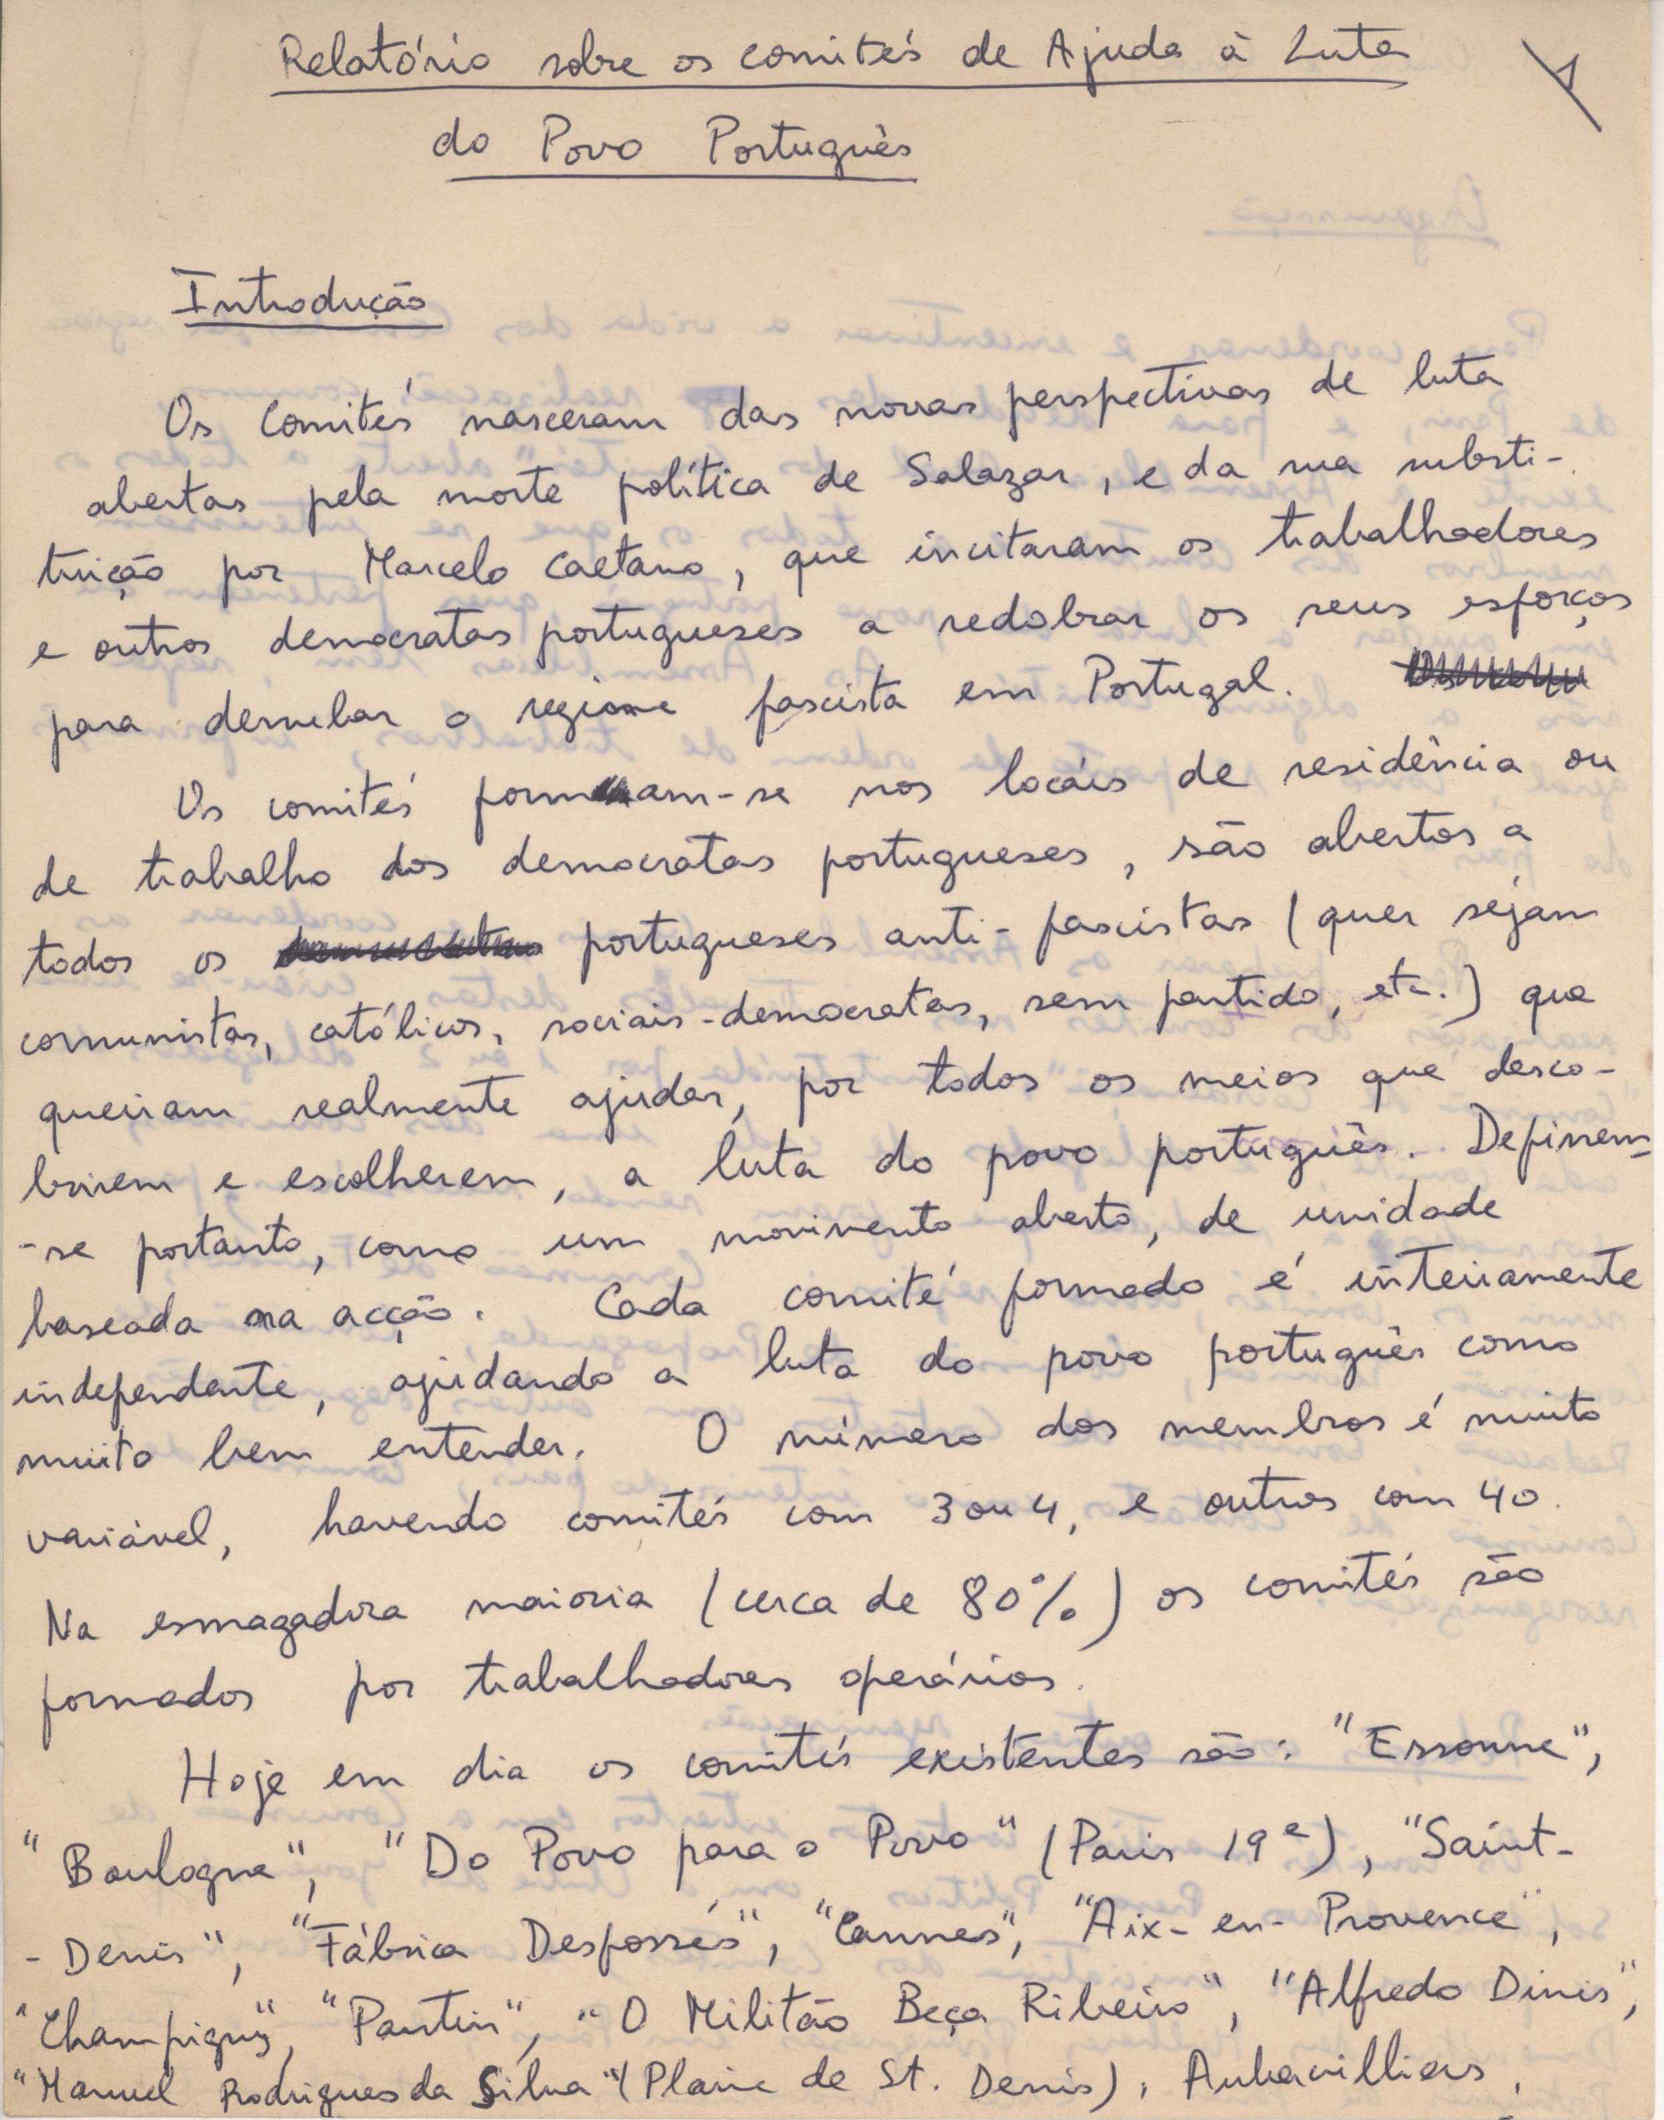 Relatório sobre os comités de Ajuda à Luta
do Povo Português
1
Introdução
Os Comités nasceram das novas perspectivas de luta
abertas pela morte política de Salazar, e da sua substi-
tuição por Marcelo Caetano, que incitaram os trabalhadores
e outros democratas portugueses a redobrar os seus esforços
para derrubar o regime fascista em Portugal.
Os comités formam-se nos locáis de residência ou
de trabalho dos democratas portugueses, são abertos a
todos os portugueses anti-fascistas (quer sejam
comunistas, católicos, sociais-democratas, sem partido, etc.) que
queiram realmente ajudar, por todos os meios que desco-
brirem e escolherem, a luta do povo português. Definem-
-se portanto, como um movimento aberto, de unidade
baseada na acção. Cada comité formado é inteiramente
independente, ajudando a luta do povo português como
muito bem entender. O número dos membros é muito
variável, havendo comités com 3 ou 4, e outros com 40.
Na esmagadora maioria (cerca de 80%) os comités são
formados por trabalhadores operários.
Hoje em dia os comités existentes são: "Essonne",
"Boulogne", "Do Povo para o Povo" (Paris 19e), "Saint-
-Denis", "Fábrica Desfossés", "Cannes", "Aix-en-Provence",
"Champigny", "Pantin", "O Militão Beça Ribeiro", "Alfredo Dinis",
"Manuel Rodrigues da Silva" (Plaine de St. Denis), Aubervilliers,